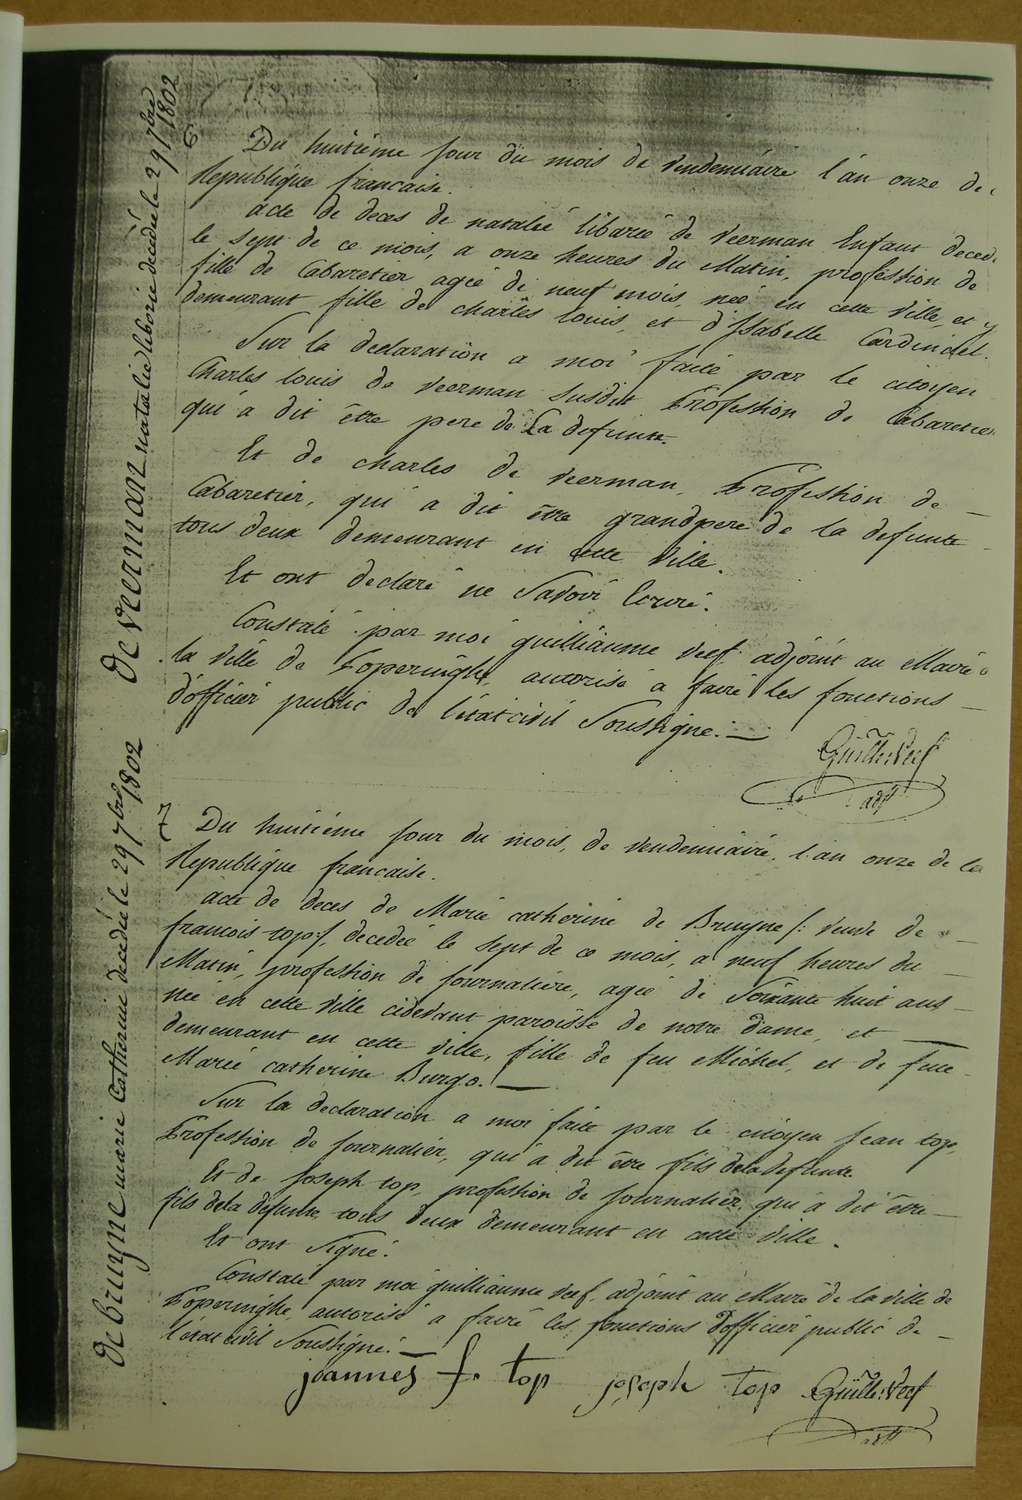 de veerman natalie liborie decedée le 29 7bre 1802
6
Du huitième jour du mois de vendemiaire l'an onze de
Republique francaise.
acte de deces de natalie libarie de veerman Enfant deced
le sept de ce mois, a onze heures du Matin, profession de
fille de Cabaretier agée de neuf mois, née en cette ville, et y
demeurant fille de charles louis, et d'Isabelle Cardinael.
Sur la declaration a moi faite par le citoyen
Charles louis de veerman susdit Profession de Cabaretier
qui a dit être pere de La defunte.
Et de charles de veerman, Profession de
Cabaretier, qui a dit être grandpere de la defunte
tous deux demeurant en cette ville.
Et ont declaré ne savoir Ecrire.
Constaté par moi guilliaume Veef adjoint au Maire
la ville de Poperinghe, autorisé a faire les fonctions
d'officier public de l'état civil Soussigné.
Guille: Veef
adjt
de bruyne marie Catherine decedée le 29 7bre 1802
7
Du huitième jour du mois, de vendemiaire, l'an onze de la
Republique francaise.
acte de deces de Marie catherine de Bruyne /: veuve de
francois top :/, decedée le sept de ce mois, a neuf heures du
Matin, profession de journaliere, agée de Soixante huit ans
née en cette ville cidevant paroisse de notre dame, et
demeurant en cette ville, fille de feu Michel, et de feue
Marie catherine Burgo.
Sur la declaration a moi faite par le citoyen Jean top,
Profession de Journalier, qui a dit être fils dela defunte.
Et de Joseph top, profession de journalier, qui a dit être
fils dela defunte, tous deux demeurant en cette ville.
Et ont signé.
Constaté par moi guilliaume veef, adjoint au Maire de la ville de
Poperinghe, autorisé a faire les fonctions d'officier public de
l'état civil Soussigné.
joannes f. top joseph top Guille: Veef
adjt